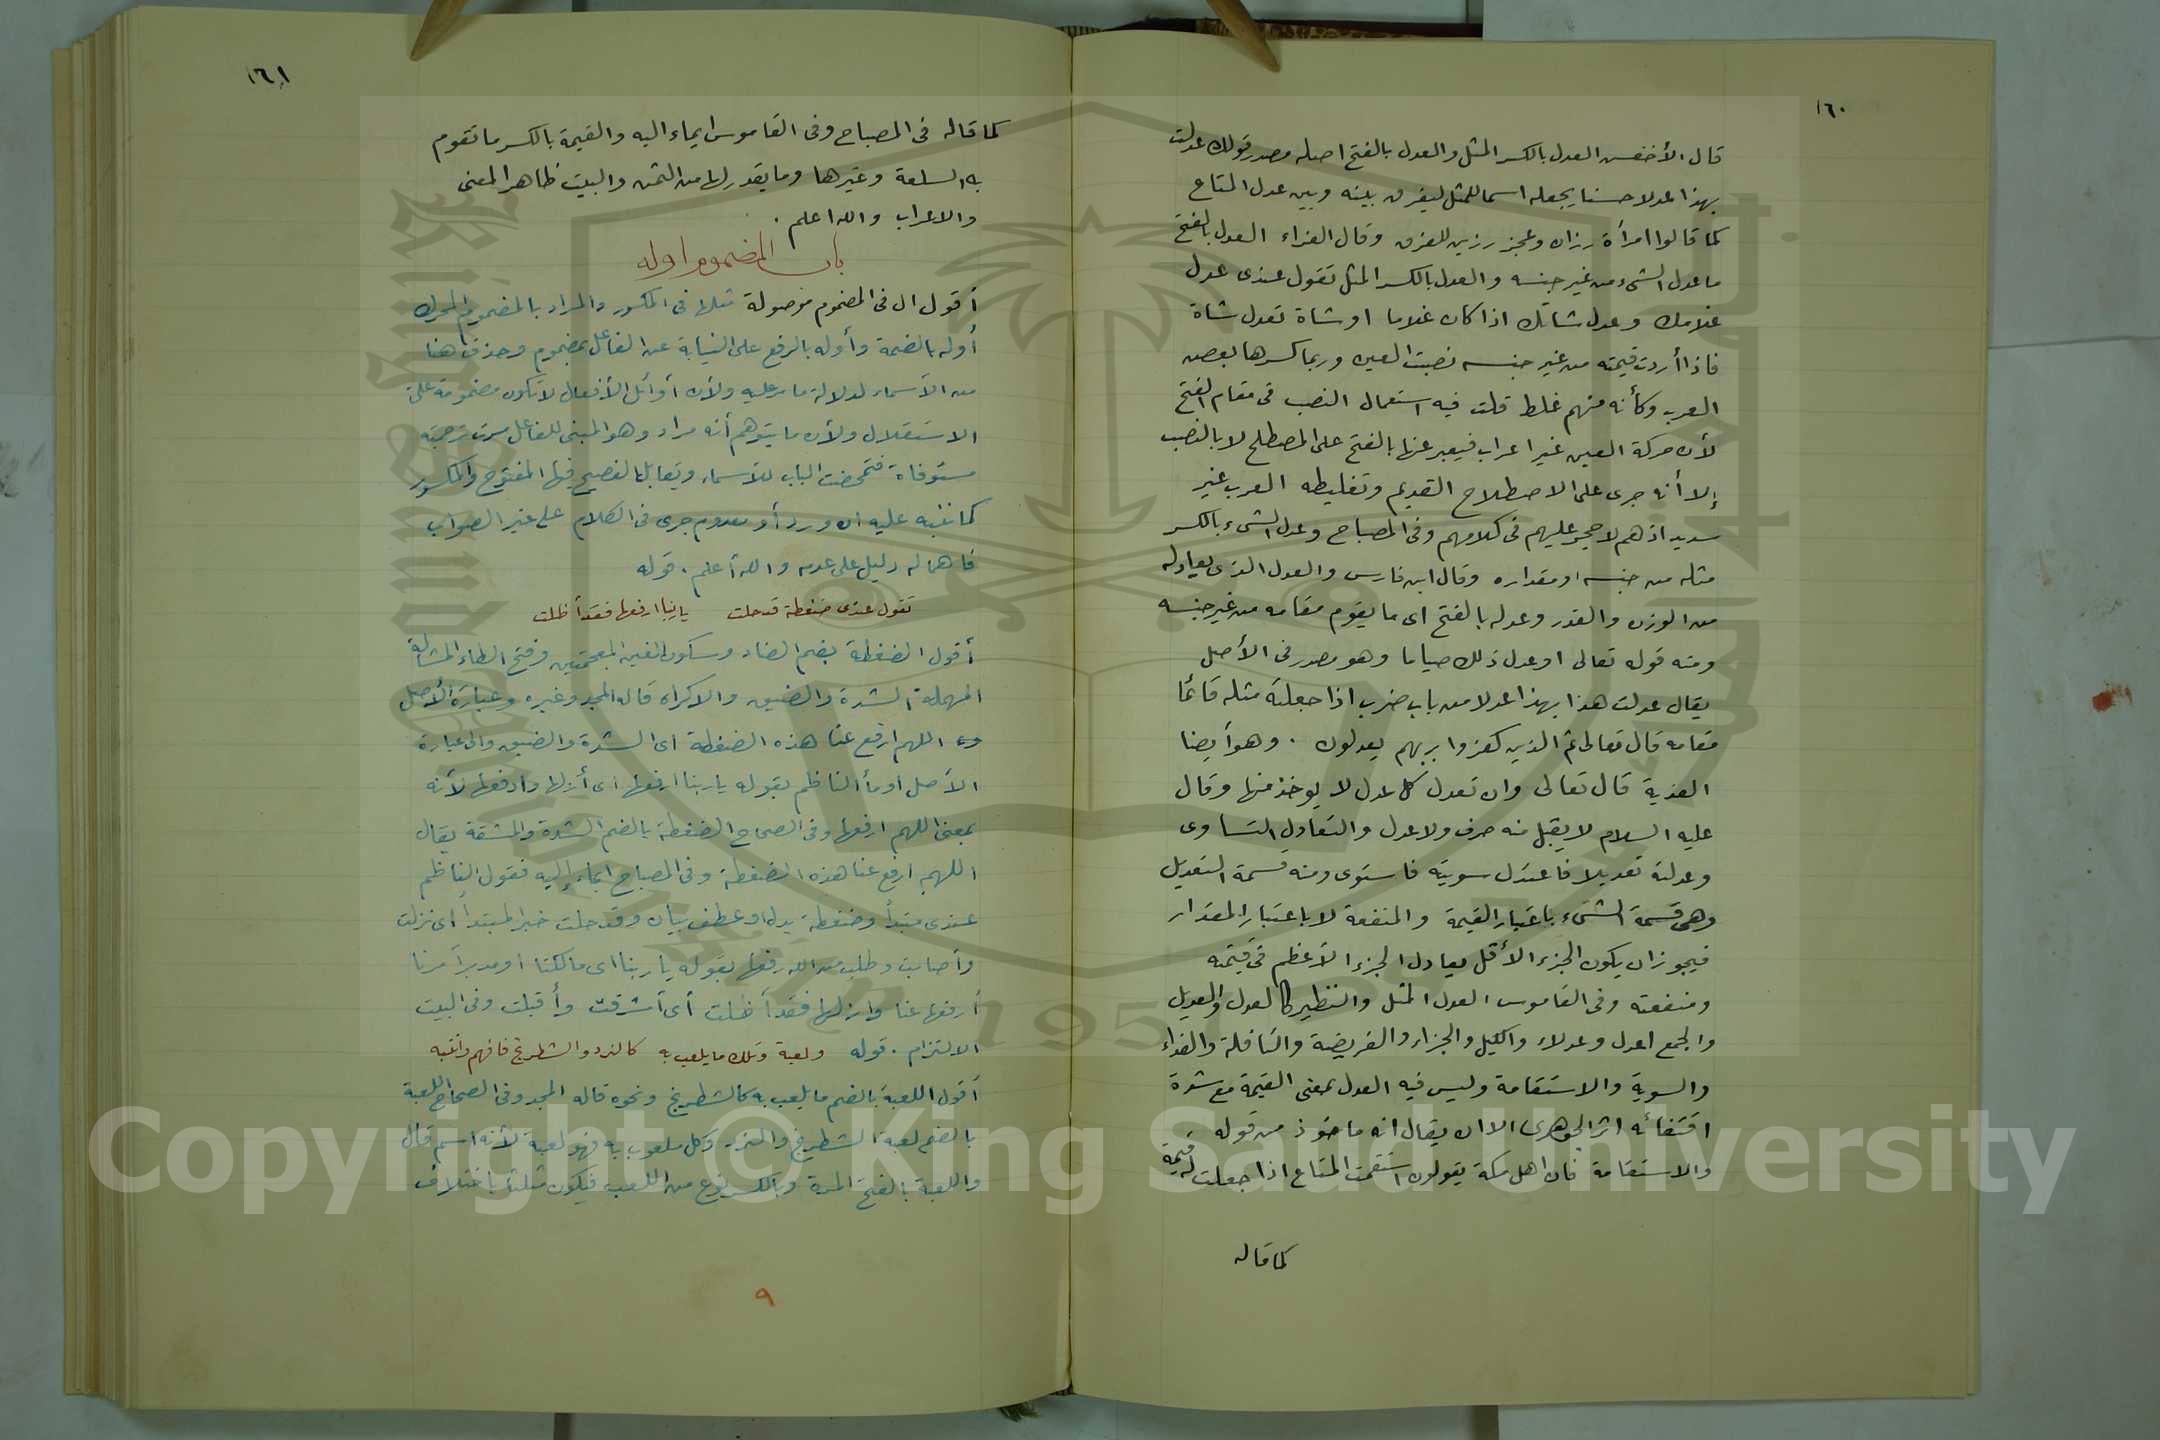 ١٦٠
قال الأخفش العدل بالكسر المثل والعدل بالفتح اصله مصدر قولك عدلت
بهذا عدلا حسنا يجعله اسما للمثل ليفرق بينه وبين عدل المتاع
كما قالوا امرأة رزان وعجز رزين للفرق وقال الفراء العدل بالفتح
ما عدل الشىء من غير جنسه والعدل بالكسر المثل تقول عندى عدل
غلامك وعدل شاتك اذا كان غلاما او شاة تعدل شاة
فاذا أردت قيمته من غير جنسه نصبت العين وربما كسرها بعض
العرب وكأنه منهم غلط قلت فيه استعمال النصب فى مقام الفتح
لأن حركة العين غير اعراب فيعبر عنها بالفتح على المصطلح لا بالنصب
إلا أنه جرى على الاصطلاح القديم وتغليطه العرب غير
سديد اذ هم لا حجر عليهم فى كلامهم وفى المصباح وعدل الشىء بالكسر
مثله من جنسه او مقداره وقال ابن فارس والعدل الذى يعادله
من الوزن والقدر وعدله بالفتح اى ما يقوم مقامه من غير جنسه
ومنه قوله تعالى او عدل ذلك صياما وهو مصدر فى الأصل
يقال عدلت هذا بهذا عدلا من باب ضرب اذا جعلته مثله قائما
مقامه قال تعالى ثم الذين كفروا بربهم يعدلون . وهو أيضا
الفدية قال تعالى وان تعدل كل عدل لا يوخذ منها وقال
عليه السلام لا يقبل منه صرف ولا عدل والتعادل التساوى
وعدلته تعديلا فاعتدل سويته فاستوى ومنه قسمة التعديل
وهى قسمة الشىء باعتبار القيمة والمنفعة لا باعتبار المقدار
فيجوز ان يكون الجزء الأقل يعادل الجزء الأعظم فى قيمته
ومنفعته وفى القاموس العدل المثل والنظير كالعدل والعديل
والجمع اعدل وعدلاء والكيل والجزاء والفريضة والنافلة والفداء
والسوية والاستقامة وليس فيه العدل بمعنى القيمة مع شدة
اقتفائه اثر الجوهرى الا ان يقال انه ماخوذ من قوله
والاستقامة فان اهل مكة يقولون استقمت المتاع اذا جعلت له قيمة
كما قاله
١٦١
كما قاله فى المصباح وفى القاموس ايماء اليه والقيمة بالكسر ما تقوم
به السلعة وغيرها وما يقدر لها من الثمن والبيت ظاهر المعنى
والاعراب والله اعلم .
باب المضموم اوله
أقول ال فى المضموم موصولة مثلها فى المكسور والمراد بالمضموم المحرك
أوله بالضمة وأوله بالرفع على النيابة عن الفاعل بمضموم وحذف هنا
من الأسماء لدلالة ما مر عليه ولأن أوائل الأفعال لا تكون مضمومة على
الاستقلال ولأن ما يتوهم أنه مراد وهو المبنى للفاعل مرت ترجمته
مستوفاة فتمحضت الباب للأسماء ويقابل الفصيح فيها المفتوح والمكسور
كما ننبه عليه ان ورد أو معدوم جرى فى الكلام على غير الصواب
فاهماله دليل على عدمه والله أعلم . قوله
تقول عندى ضغطة قد حلت يا ربنا ارفعها فقد أظلت
أقول الضغطة بضم الضاد وسكون الغين المعجمتين وفتح الطاء المشالة
المهملة الشدة والضيق والاكراه قاله المجد وغيره وعبارة الأصل
اللهم ارفع عنا هذه الضغطة اى الشدة والضيق والى عبارة
الأصل اومأ الناظم بقوله يا ربنا ارفعها اى أزلها وادفعها لأنه
بمعنى اللهم ارفعها وفى الصحاح الضغطة بالضم الشدة والمشقة يقال
اللهم ارفع عنا هذه الضغطة وفى المصباح ايماء إليه فقول الناظم
عندى مبتدأ وضغطة بدل او عطف بيان وقد حلت خبر المبتدأ اى نزلت
وأصابت وطلب من الله رفعها بقوله يا ربنا اى مالكنا او مدبر أمرنا
أرفعها عنا وازلها فقد أظلت أى أشرفت وأقبلت وفى البيت
الالتزام . قوله ولعبة وتلك ما يلعب به كالنرد والشطرنج فافهم وانتبه
أقول اللعبة بالضم ما يلعب به كالشطرنج ونحوه قاله المجد وفى الصحاح اللعبة
بالضم لعبة الشطرنج والنرد وكل ملعوب به فهو لعبة لأنه اسم قال
واللعبة بالفتح المرة وبالكسر نوع من اللعب فيكون مثلثا باختلاف
٩
Copyright © King Saud University
1957